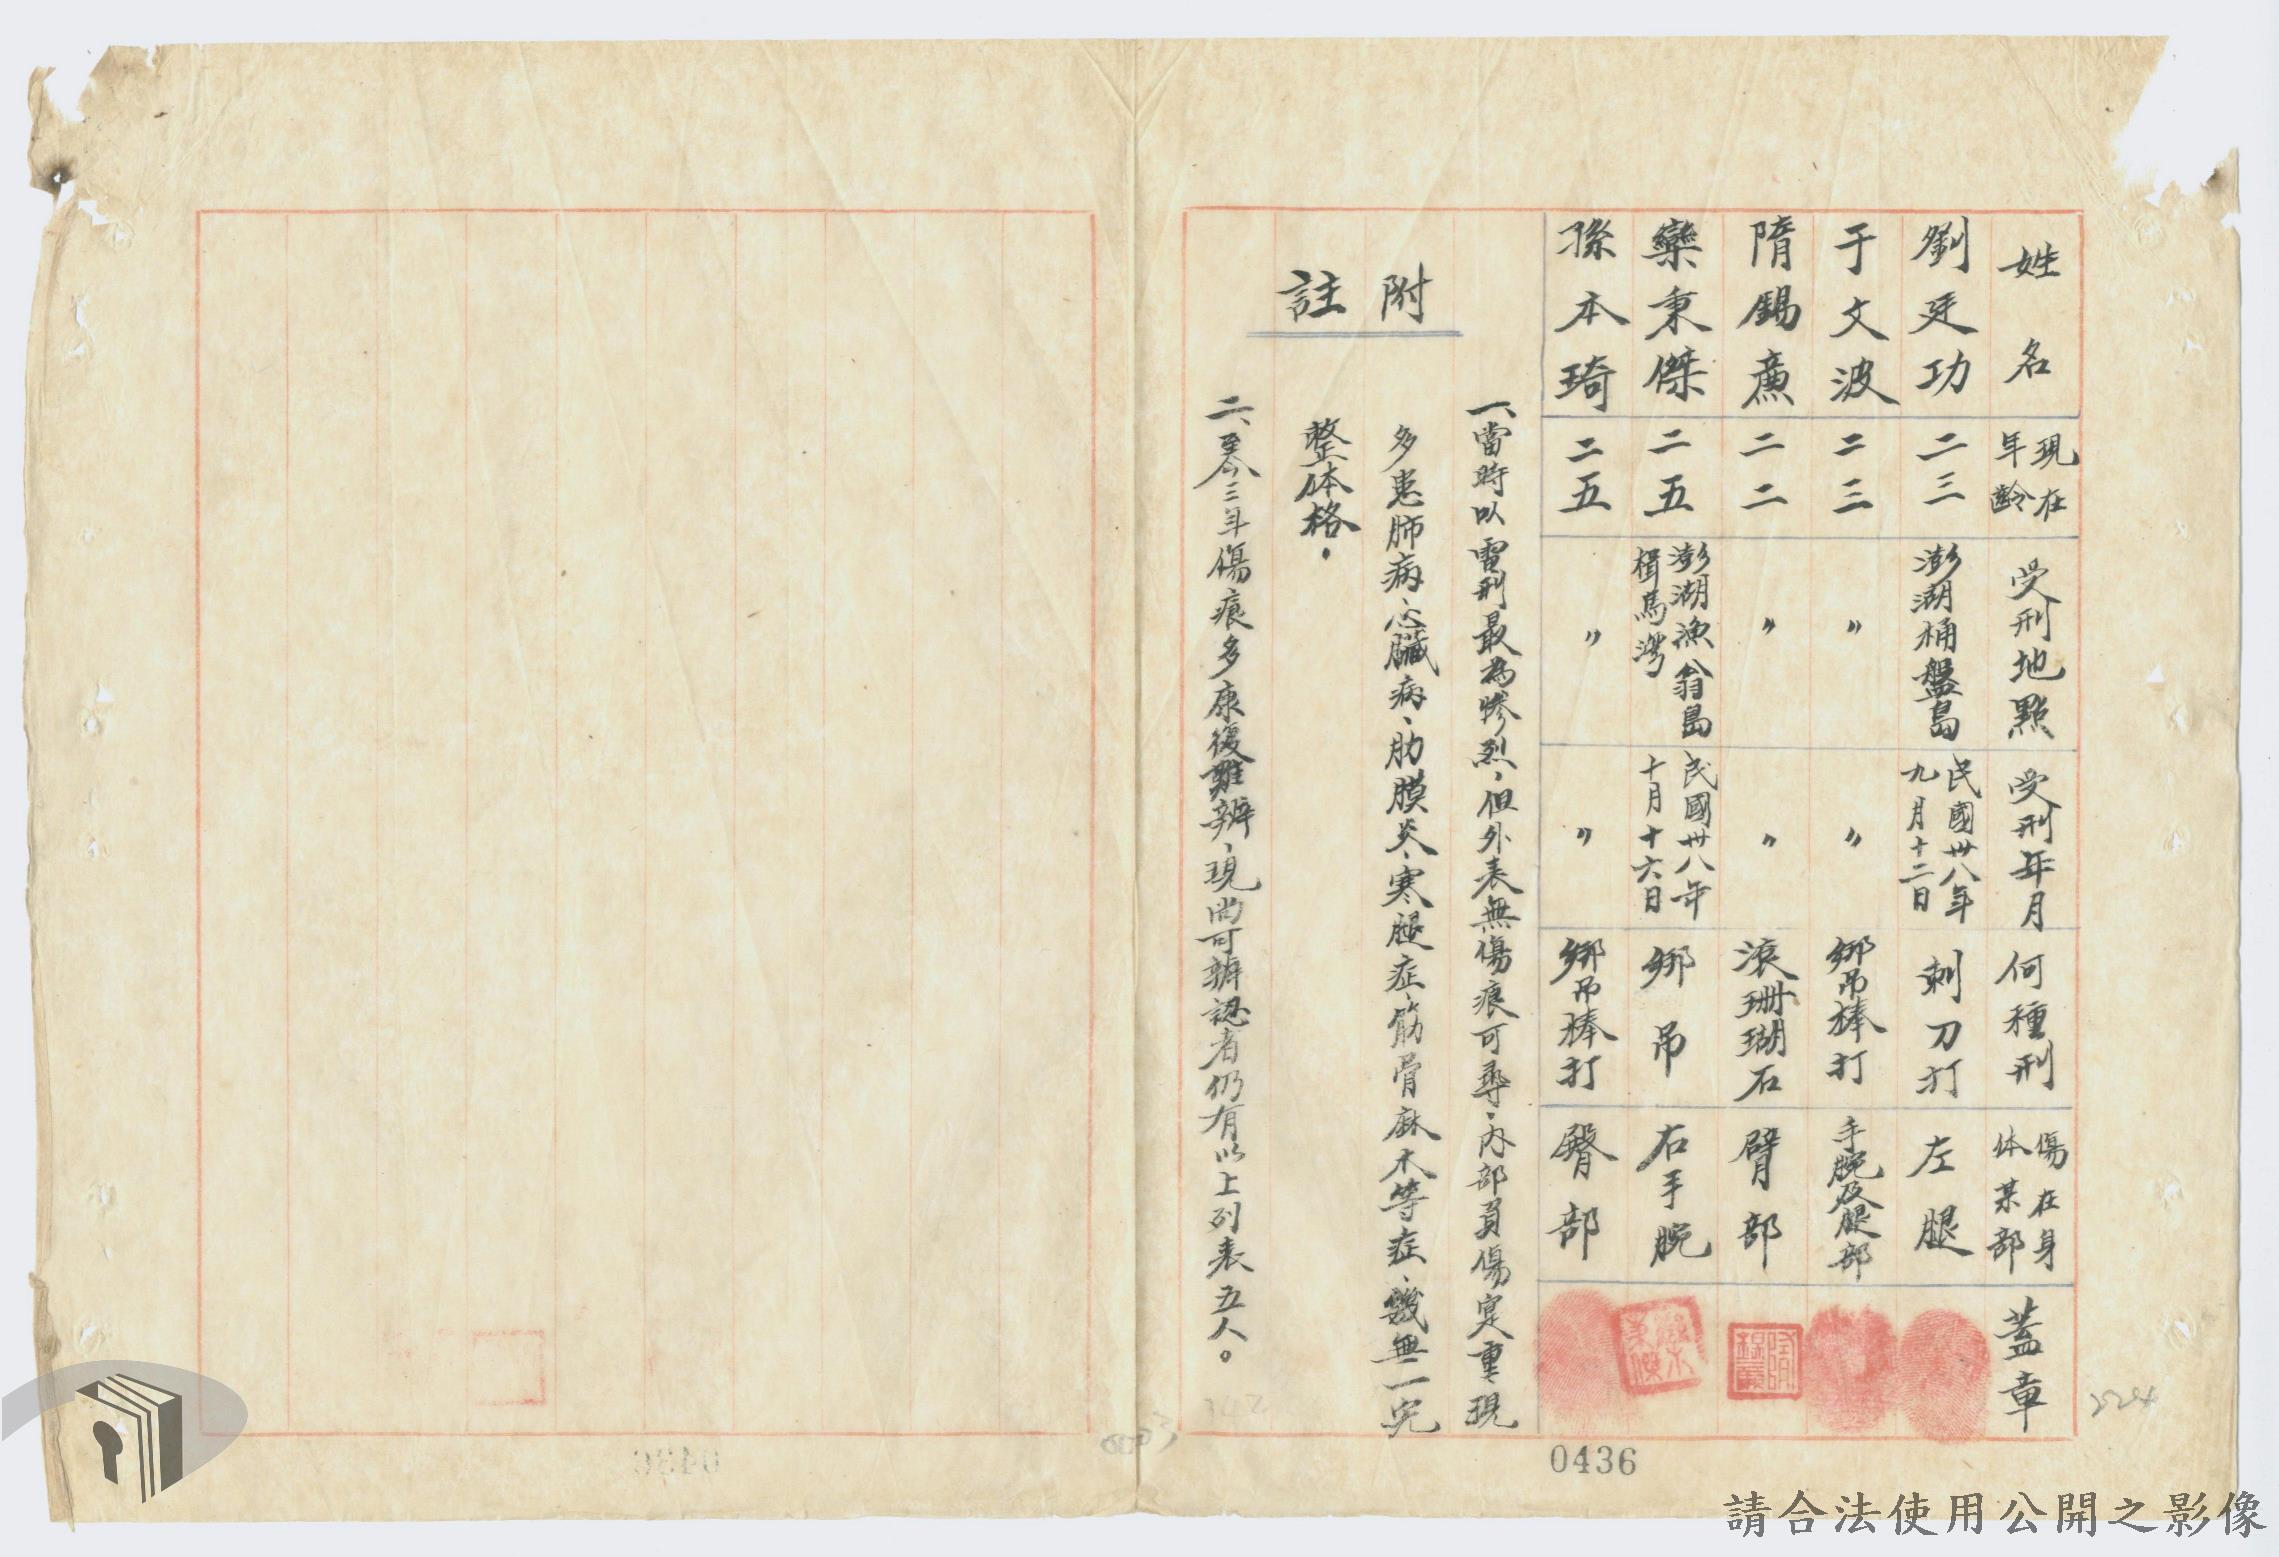 姓名
現在年齡
受刑地點
受刑年月
何種刑
傷在身体某部
蓋章
劉廷功
二三
澎湖桶盤島
民國卅八年九月十二日
刺刀打
左腿
于文波
二三
〃
〃
綁吊棒打
手腕及腿部
隋錫廌
二二
〃
〃
滾珊瑚石
臂部
欒秉傑
二五
澎湖漁翁島
楫馬灣
民國卅八年十月十六日
綁吊
右手腕
孫本琦
二五
〃
〃
綁吊棒打
臀部
附註
一、當時以電刑最為慘烈，但外表無傷痕可尋，內部負傷寔重，現
多患肺病、心臟病、肋膜炎、寒腿症、筋骨麻木等症，幾無一完
整体格。
二、至今三年傷痕多康復難辨，現尚可辨認者仍有以上列表五人。
0436
請合法使用公開之影像